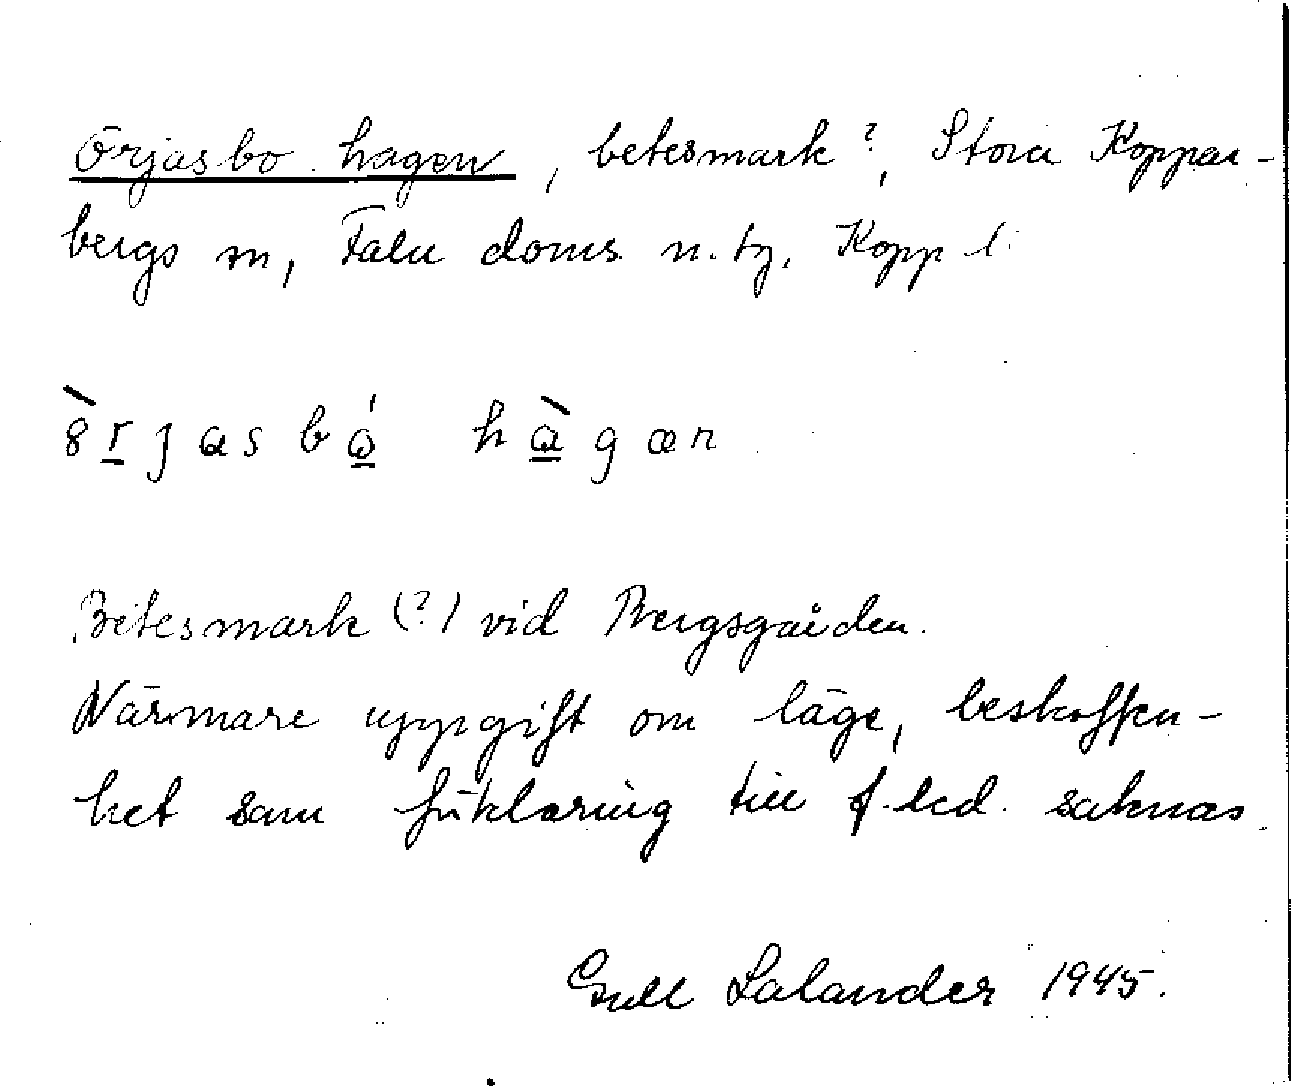 Örjasbo hagen, betesmark?, Stora Koppar-
bergs sn, Falu doms. n. tg, Kopp l.
ȣ̀r̲jɑsbó̲ hɑ̲̀gæn
Betesmark (?) vid Bergsgården.
Närmare uppgift om läge, beskaffen-
het sam förklaring till f. led. saknas.
Gull Salander 1945.